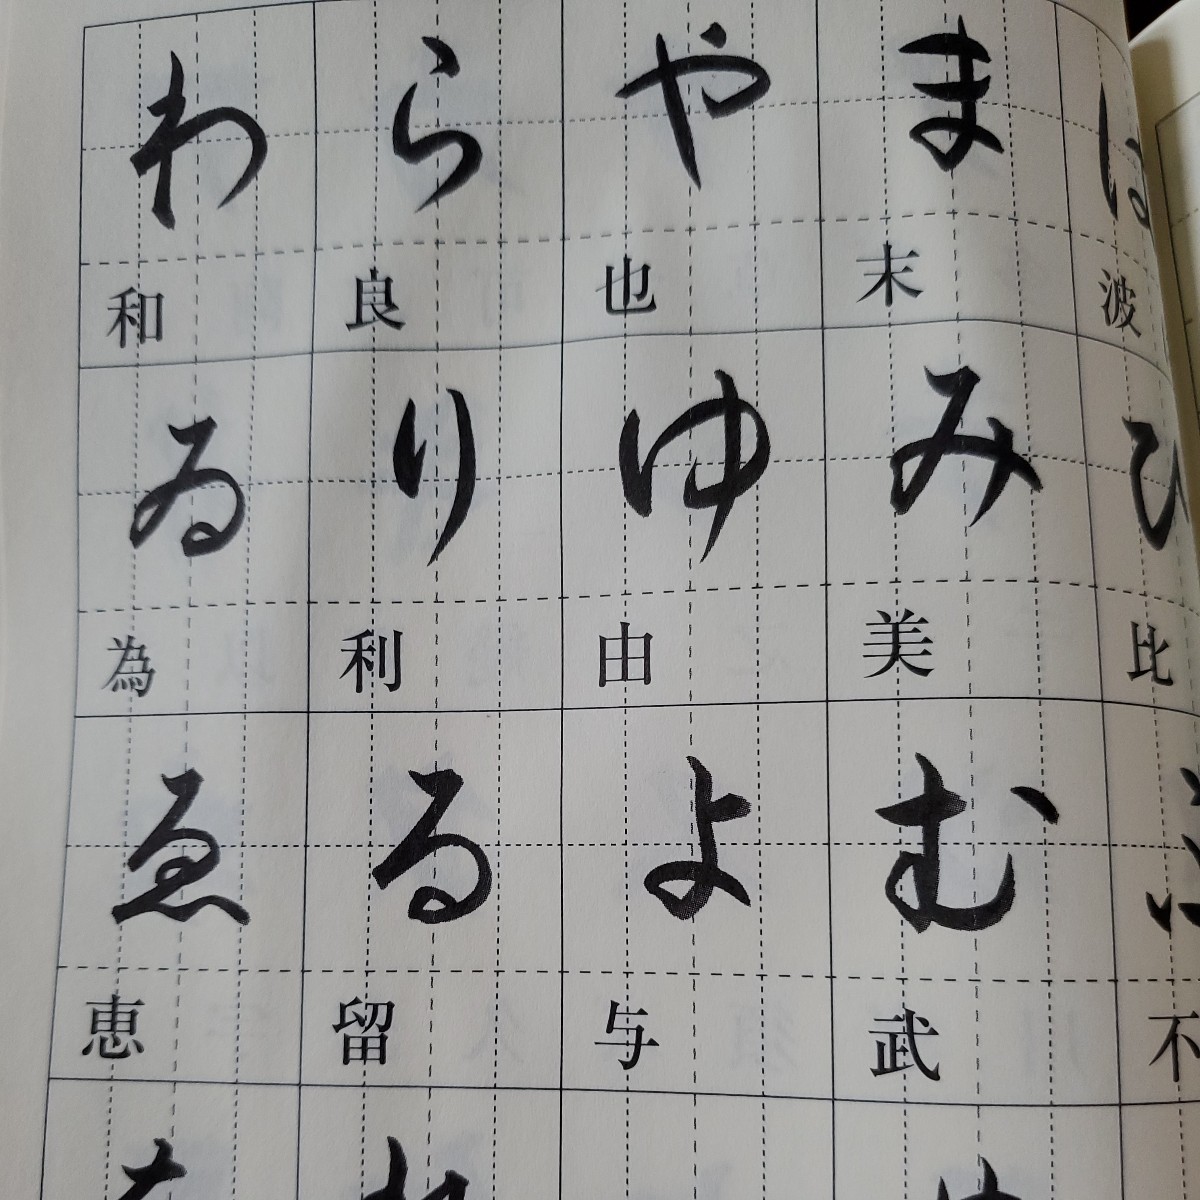 は
波
ひ
比
不
ま
末
み
美
む
武
や
也
ゆ
由
よ
与
ら
良
り
利
る
留
わ
和
ゐ
為
ゑ
恵